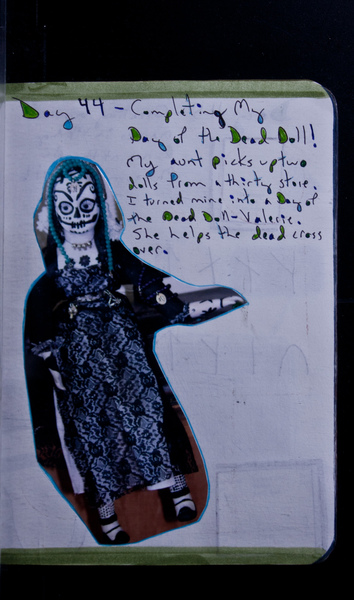 Day 44 - Completing My
Day of the Dead Doll!
My aunt picks up two
dolls from a thirty store.
I turned mine into a Day of
the Dead Doll-Valerie.
She helps the dead cross
over.